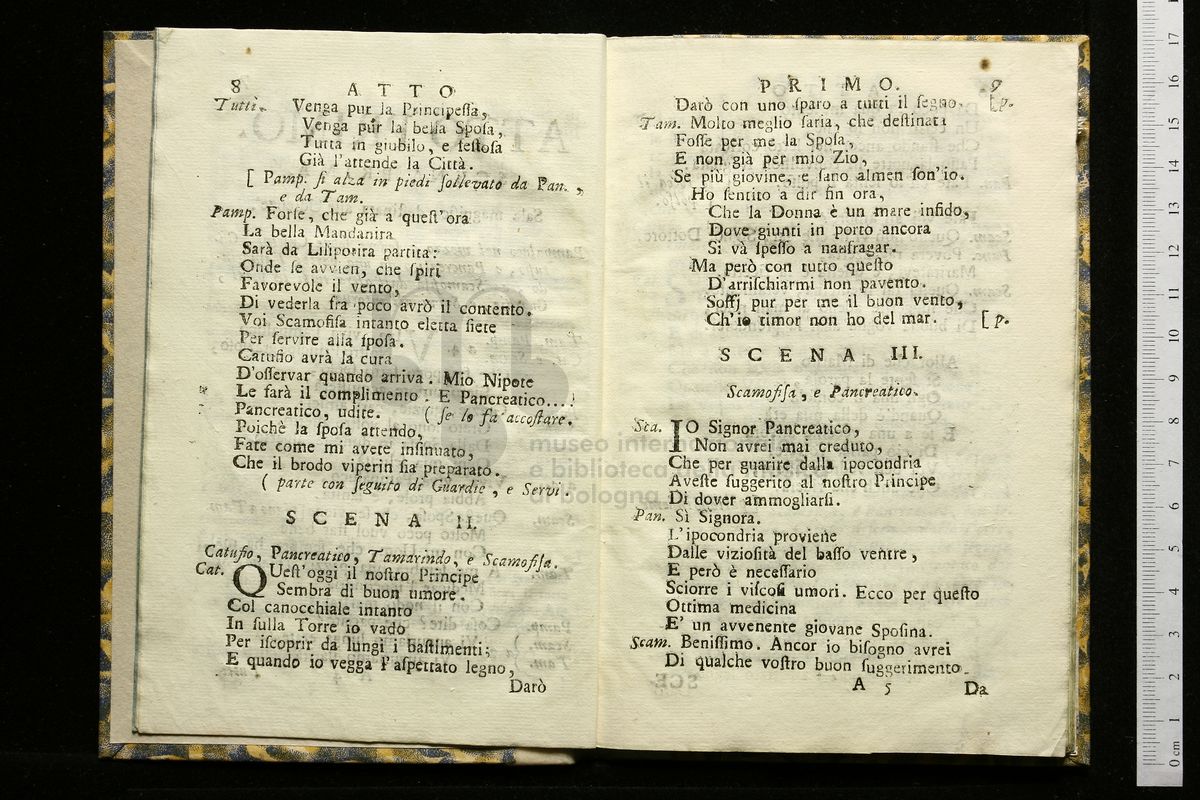 8 ATTO
Tutti. Venga pur la Principeſſa,
Venga pur la bella Spoſa,
Tutta in giubilo, e feſtoſa
Già l'attende la Città.
[ Pamp. ſi alza in piedi ſollevato da Pan.,
e da Tam.
Pamp. Forſe, che già a queſt'ora
La bella Mandanira
Sarà da Lilipotira partita:
Onde ſe avvien, che ſpiri
Favorevole il vento,
Di vederla fra poco avrò il contento.
Voi Scamofiſa intanto eletta ſiete
Per ſervire alla ſpoſa.
Catufio avrà la cura
D'oſſervar quando arriva. Mio Nipote
Le farà il complimento. E Pancreatico...!
Pancreatico, udite. ( ſe lo fa accoſtare.
Poichè la ſpoſa attendo,
Fate come mi avete inſinuato,
Che il brodo viperin ſia preparato.
( parte con ſeguito di Guardie, e Servi.
SCENA II.
Catufio, Pancreatico, Tamarindo, e Scamofiſa.
Cat. QUeſt'oggi il noſtro Principe
Sembra di buon umore.
Col canocchiale intanto
In ſulla Torre io vado
Per iſcoprir da lungi i baſtimenti;
E quando io vegga l'aſpettato legno,
Darò
PRIMO. 9
Darò con uno ſparo a tutti il ſegno. [p.
Tam. Molto meglio ſaria, che deſtinata
Foſſe per me la Spoſa,
E non già per mio Zio,
Se più giovine, e ſano almen ſon'io.
Ho ſentito a dir fin ora,
Che la Donna è un mare infido,
Dove giunti in porto ancora
Si và ſpeſſo a naufragar.
Ma però con tutto queſto
D'arriſchiarmi non pavento.
Soffj pur per me il buon vento,
Ch'io timor non ho del mar. [p.
SCENA III.
Scamofiſa, e Pancreatico.
Sca. IO Signor Pancreatico,
Non avrei mai creduto,
Che per guarire dalla ipocondria
Aveſte ſuggerito al noſtro Principe
Di dover ammogliarſi.
Pan. Sì Signora.
L'ipocondria proviene
Dalle vizioſità del baſſo ventre,
E però è neceſſario
Sciorre i viſcoſi umori. Ecco per queſto
Ottima medicina
E' un avvenente giovane Spoſina.
Scam. Beniſſimo. Ancor io biſogno avrei
Di qualche voſtro buon ſuggerimento.
A 5 Da
museo inter
e biblioteca de
di Bologna